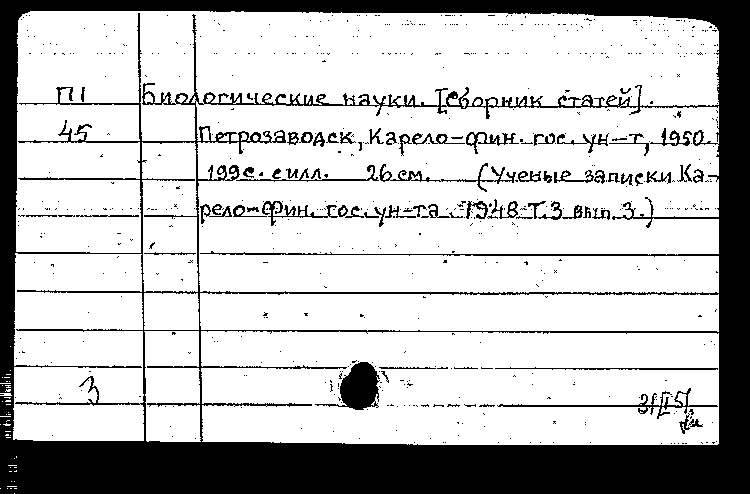 П1 Биологические науки. [Сборник статей].
45 Петрозаводск, Карело-фин. гос. ун-т, 1950.
199 с. с илл. 26 см. (Ученые записки Ка-
рело-Фин. гос. ун-та. 1948 Т.3 вып. 3.)
3